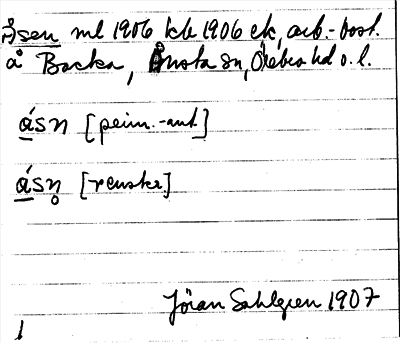 Åsen ml 1906 kb 1906 ek, arb.-bost.
å Backa, Ånsta sn, Örebro hd o. l.
åsn [prim.-ant.]
åsn̥ [renskr.]
Jöran Sahlgren 1907